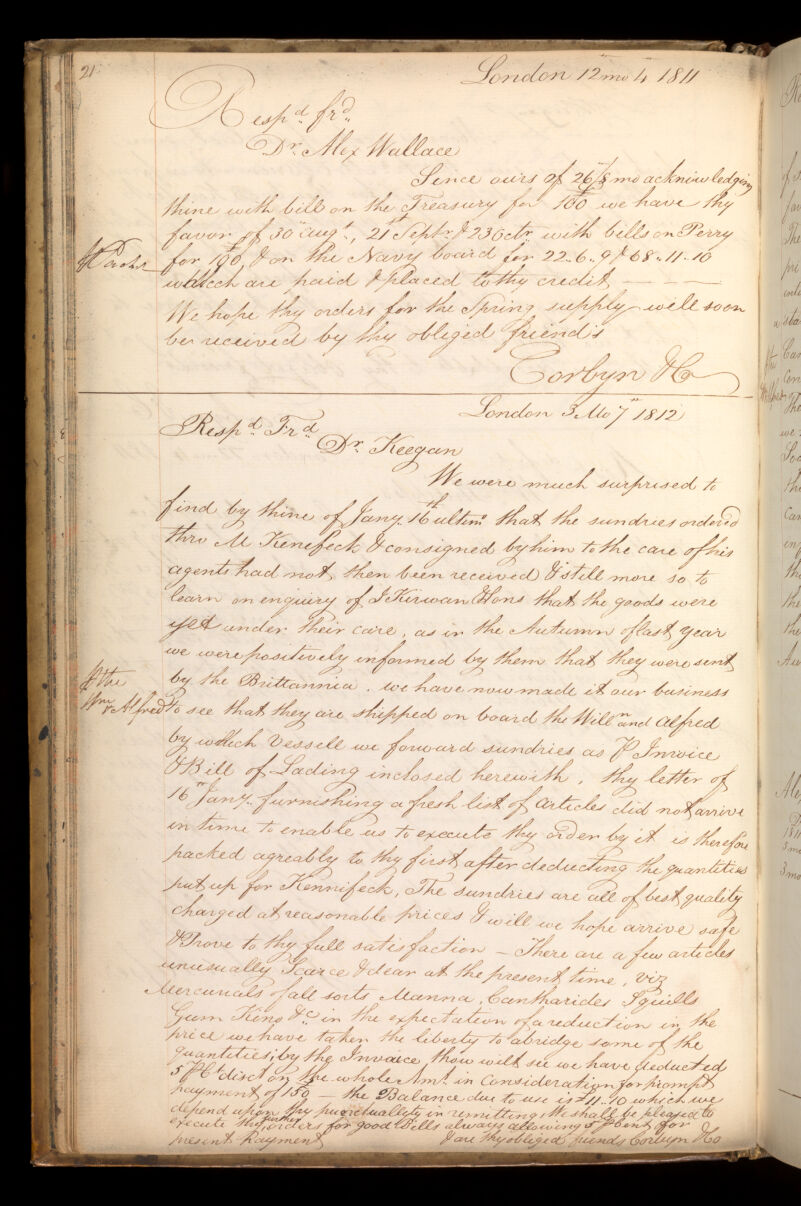 21
London 12 mo 4 1811
Respd. frd.
Dr. Alex Wallace
Since ours of 26/8 mo acknowledging
thine with bill on the Treasury for 100 we have thy
favor of 30 Augt., 21st Septr. & 23 Octr. with bills on Perry
for 190, & on the Navy board for 22..6..9 & 68..11..10
which are paid & placed to thy credit
We hope thy orders for the Spring supply will soon
be received by thy obliged friends
Corbyn & Co
London 3 Mo 7th 1812
Respd. Frd.
Dr. Keegan
We were much surprised to
find by thine of Jany. 16th ultimo that the sundries ordered
thro M Kenefeck & consigned by him to the care of his
agents had not then been received & still more so to
learn on enquiry of J Kirwan & Sons that the goods were
yet under their care, as in the Autumn of last year
we were positively informed by them that they were sent
by the Brittannia. we have now made it our business
⅌ the
Wm & Alfred
to see that they are shipped on board the Willm. and Alfred
by which Vessell we forward sundries as ⅌ Invoice
& Bill of Lading inclosed herewith, thy letter of
16th Jany. furnishing a fresh list of articles did not arrive
in time to enable us to execute thy order by it is therefore
packed agreably to thy first after deducting the quantities
put up for Kennifeck, The sundries are all of best quality
charged at reasonable prices & will we hope arrive safe
& Prove to thy full satisfaction – There are a few articles
unusually Scarce & dear at the present time, viz
Mercurials of all sorts Manna, Cantharides Squills
Gum Kino &c. in the expectation of a reduction in the
price we have taken the liberty to abridge some of the
quantities; by the Invoice thou wilt see we have deducted
5 ⅌ Ct. disct on the whole Amt. in Consideration for prompt
payment of 150 – the Balance due to us is £11..10 which we
depend upon thy punctuallity in remitting. We shall be pleased to
execute thy further orders for good Bills always allowing 5 ⅌ Cent for
present Payment & are thy obliged friends Corbyn & Co